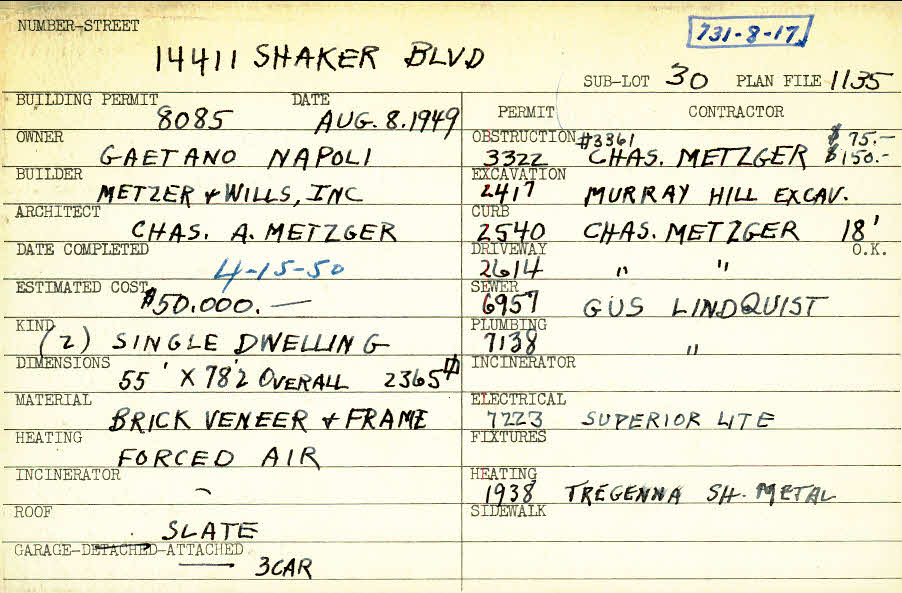 NUMBER-STREET
731-8-17
14411 SHAKER BLVD
SUB-LOT 30 PLAN FILE 1135
BUILDING PERMIT 8085 DATE AUG. 8. 1949
OWNER
GAETANO NAPOLI
BUILDER
METZER & WILLS, INC
ARCHITECT
CHAS. A. METZGER
DATE COMPLETED
4-15-50
ESTIMATED COST
$50.000.—
KIND
(2) SINGLE DWELLING
DIMENSIONS
55' X 78'2 OVERALL 2365
MATERIAL
BRICK VENEER & FRAME
HEATING
FORCED AIR
INCINERATOR
ROOF
SLATE
GARAGE-DETACHED-ATTACHED
3 CAR
PERMIT CONTRACTOR
OBSTRUCTION #3361 $ 75.—
3322 CHAS. METZGER $150.-
EXCAVATION
2417 MURRAY HILL EXCAV.
CURB
2540 CHAS. METZGER 18'
DRIVEWAY O.K.
2614 " "
SEWER
6957 GUS LINDQUIST
PLUMBING
7138 "
INCINERATOR
ELECTRICAL
7223 SUPERIOR LITE
FIXTURES
HEATING
1938 TREGENNA SH. METAL
SIDEWALK